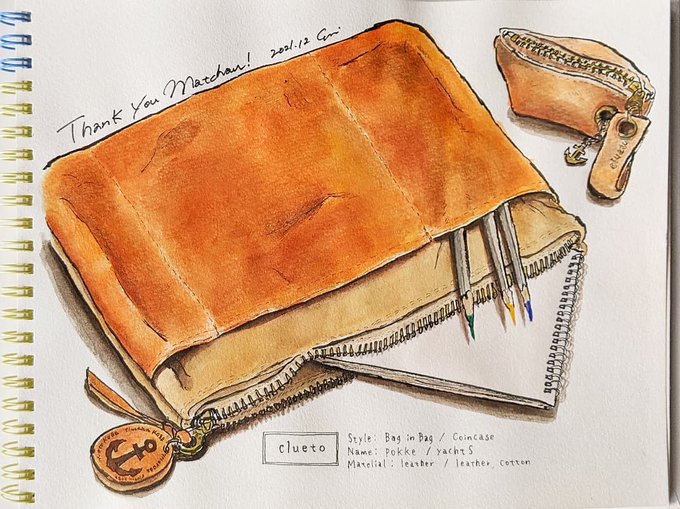 Thank You Matchan! 2021.12
clueto
clueto
Style: Bag in Bag / Coincase
Name: pokke / yacht S
Matelial: leather / leather, cotton